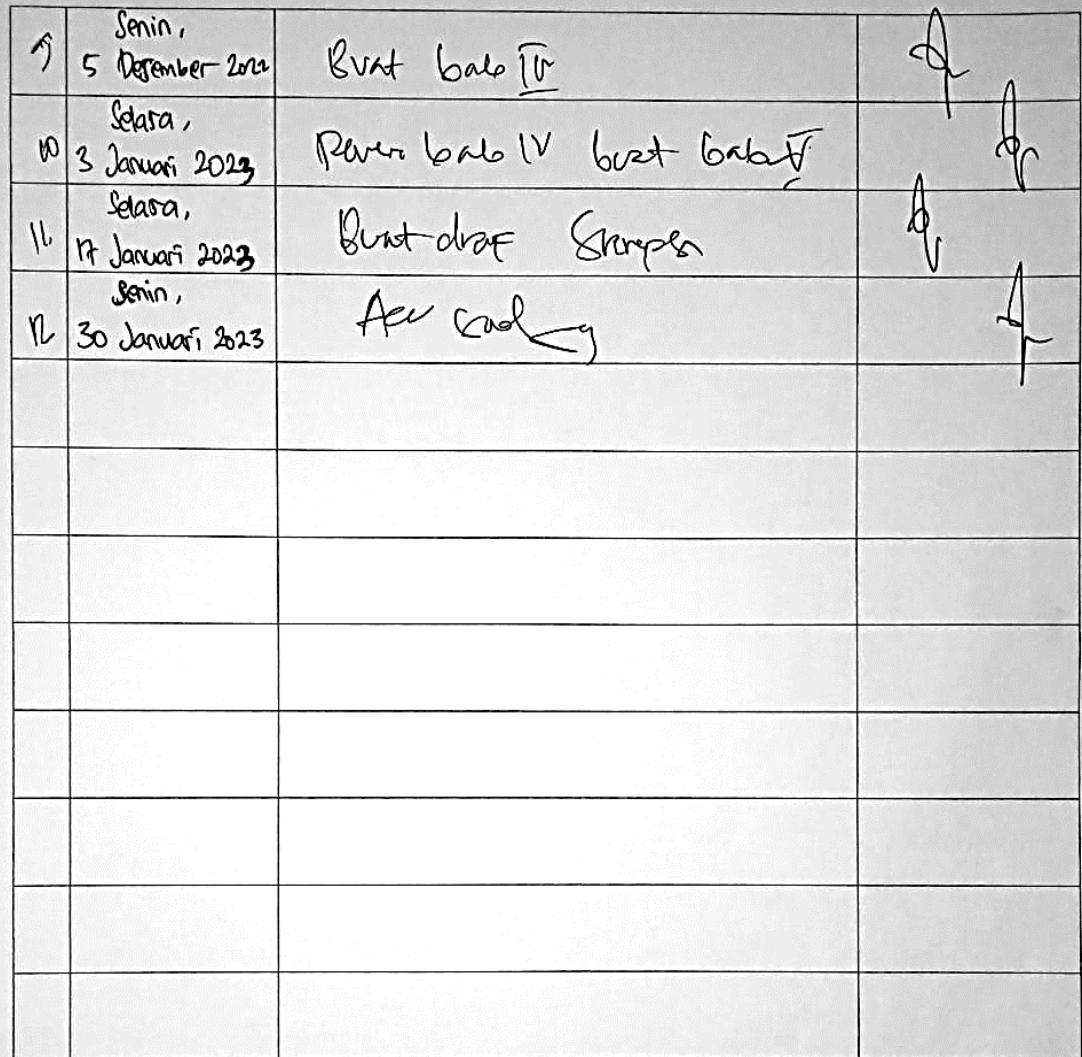 9 Senin,
5 Desember 2022 Buat bab IV
10 Selasa,
3 Januari 2023 Revisi bab IV buat bab V
11. Selasa,
17 Januari 2023 Buat draf Skripsi
12 Senin,
30 Januari 2023 Acc